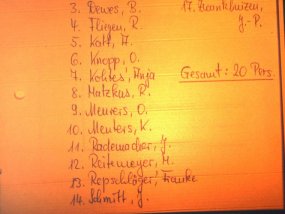 3. Dewes, B.
4. Fliegen, R
5. Katt, A.
6. Knopp, O.
7. Kohtes, Anja
8. Matzkus, R.
9. Meurers, O.
10. Meuters, K.
11. Rademacher, J.
12. Reitemeyer, M.
13. Repschläger, Frauke
14. Schmitt, J.
17. Zwankhuizen,
J.-P.
Gesamt: 20 Pers.